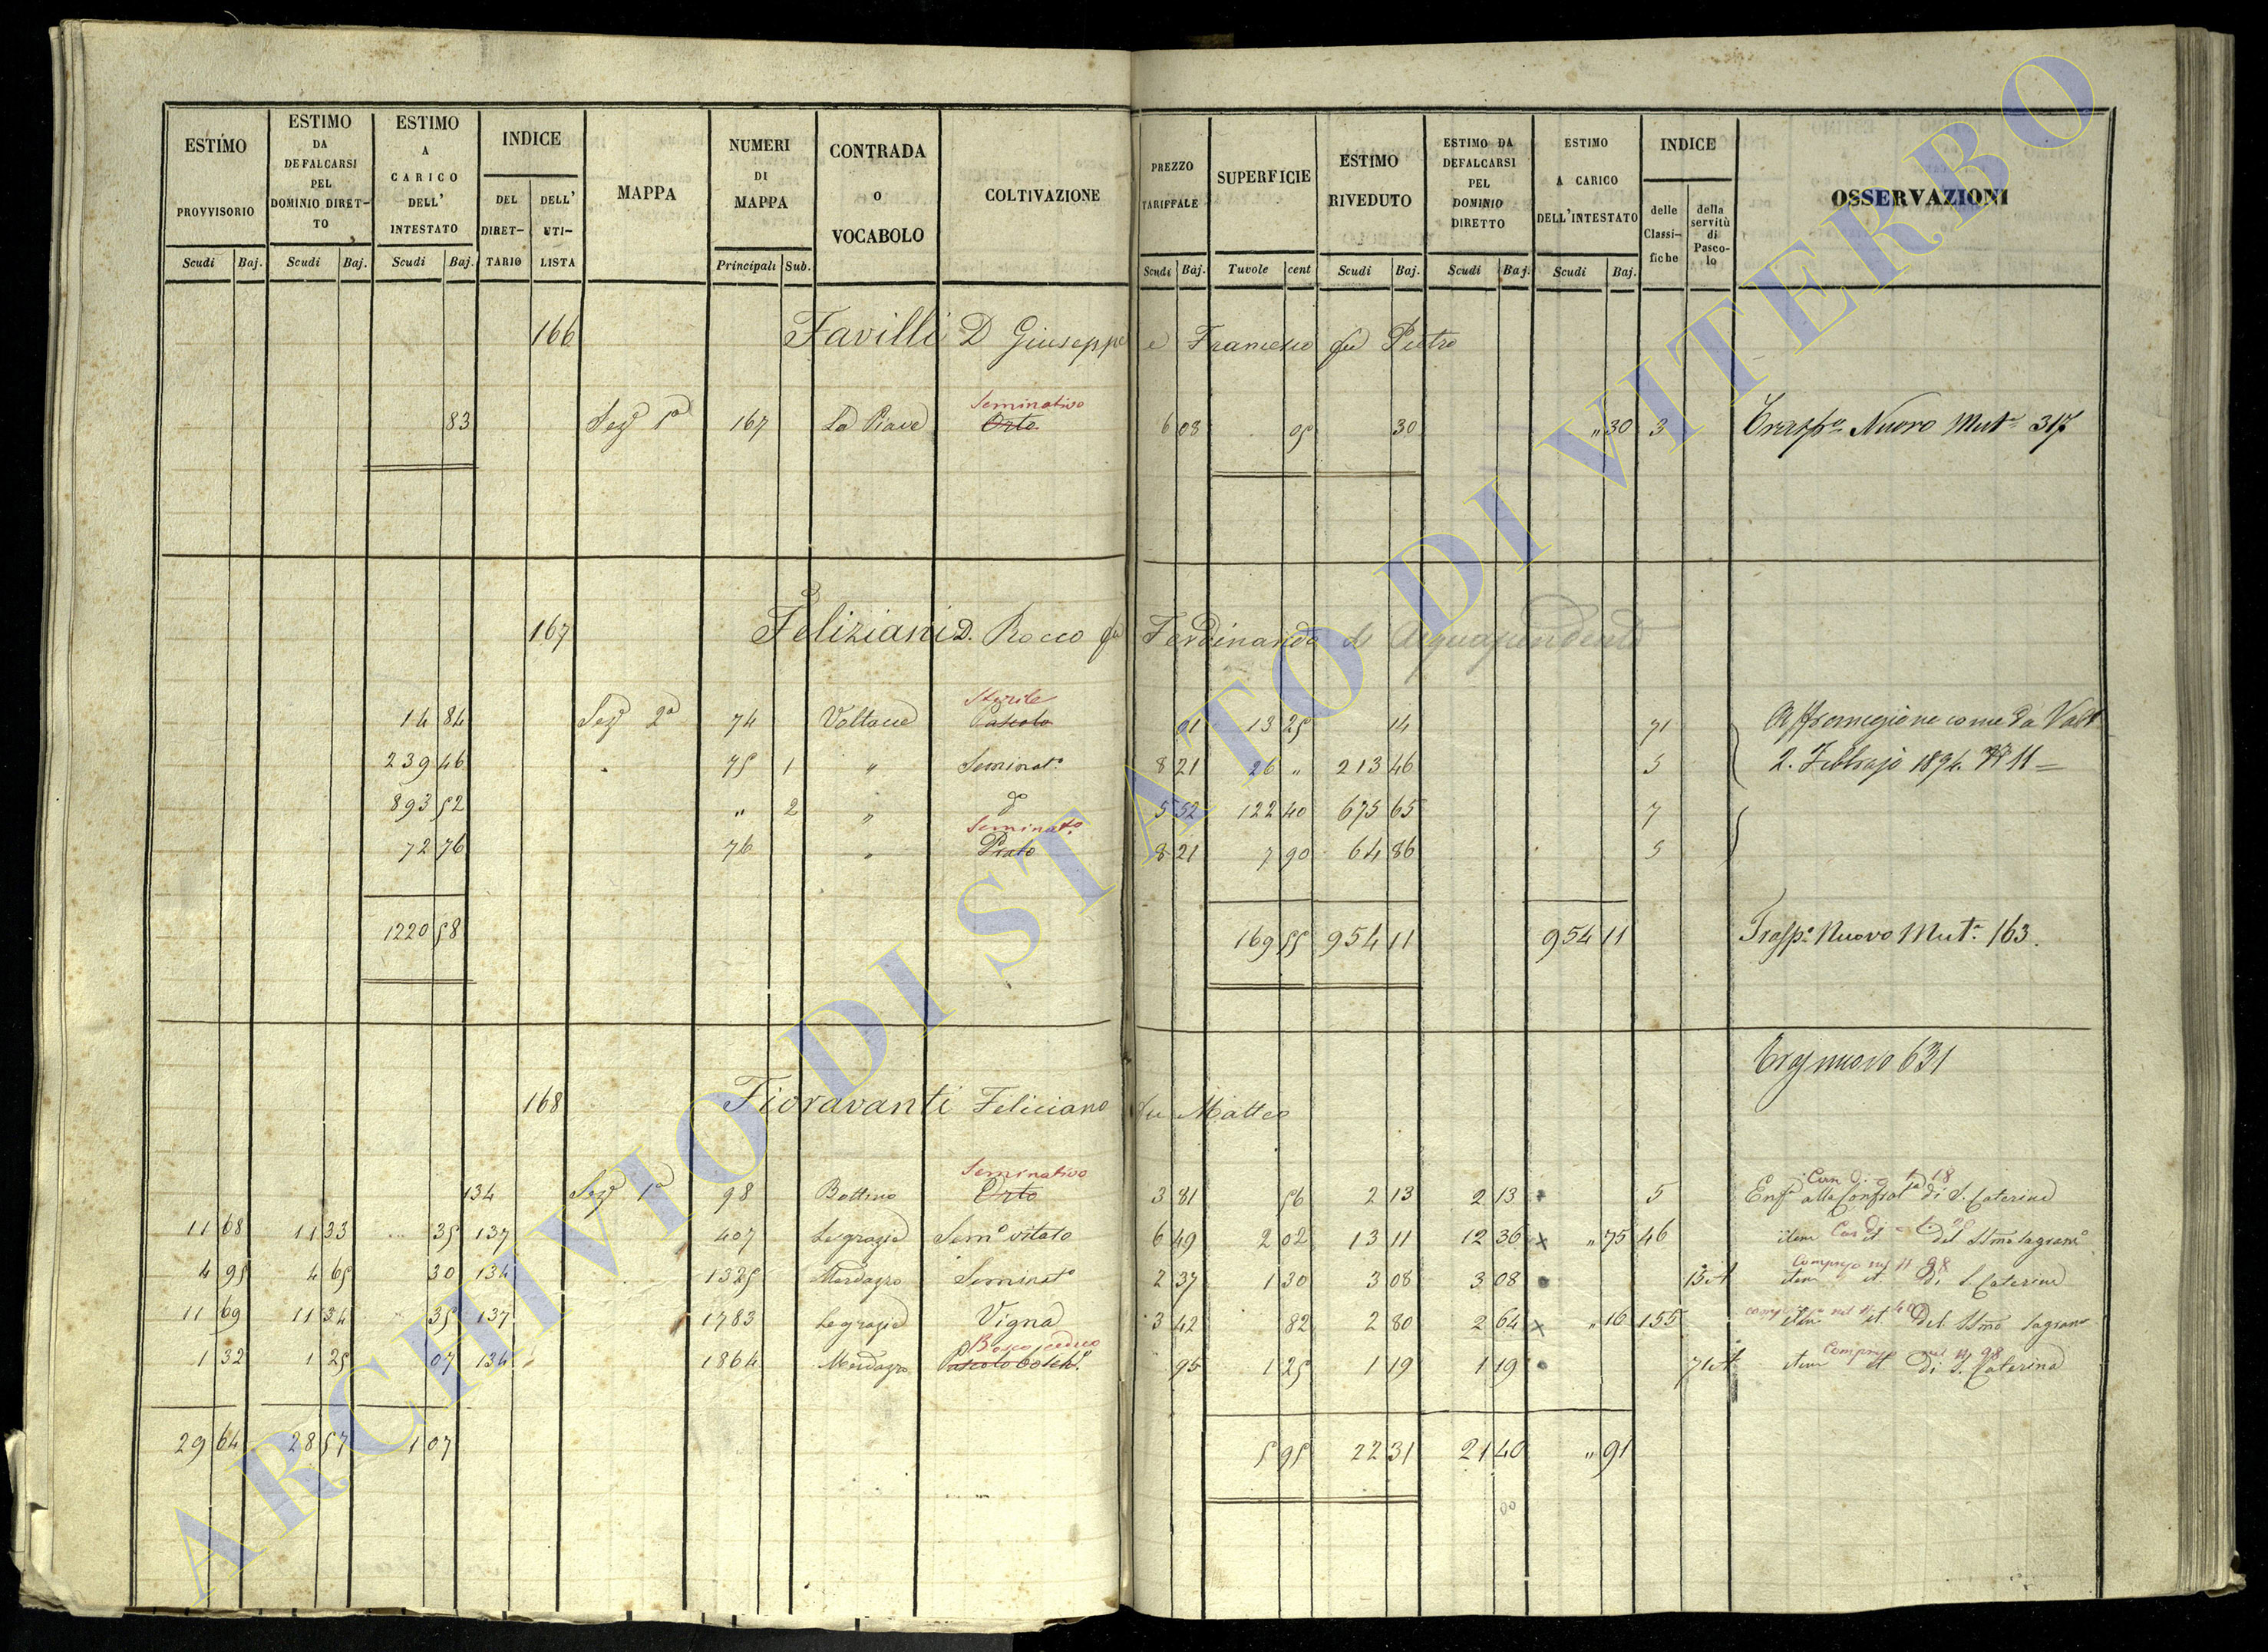 ESTIMO PROVVISORIO Scudi Baj.
ESTIMO DA DEFALCARSI PEL DOMINIO DIRET-TO Scudi Baj.
ESTIMO A CARICO DELL' INTESTATO Scudi Baj.
INDICE DEL DIRET-TARIO DELL' UTI-LISTA
MAPPA
NUMERI DI MAPPA Principali Sub.
CONTRADA o VOCABOLO
COLTIVAZIONE
PREZZO TARIFFALE Scudi Baj.
SUPERFICIE Tavole cent
ESTIMO RIVEDUTO Scudi Baj.
ESTIMO DA DEFALCARSI PEL DOMINIO DIRETTO Scudi Baj.
ESTIMO A CARICO DELL'INTESTATO Scudi Baj.
INDICE delle Classi-fiche della servitù di Pasco-lo
OSSERVAZIONI
166 Favilli D Giuseppe e Francesco fu Pietro
Seminativo
83 Sez.e 1a 167 La Piave Orto 6 08 05 30 " 30 3 Trasp.o Nuovo Mut.e 317
167 Feliziani D. Rocco fu Ferdinando di Acquapendente
Sterile
14 84 Sez.e 2a 74 Voltaue Pascolo 01 13 25 14 71 Affrancazione come da Volt
239 46 75 1 " Seminat.o 8 21 26 " 213 46 5 2. Febbrajo 1894. N 11 =
893 52 " 2 " do 5 52 122 40 675 65 7
Seminat.o
72 76 76 " Prato 8 21 7 90 64 86 5
1220 58 169 55 954 11 954 11 Trasp.o Nuovo Mut.e 163.
nuovo 631
168 Fioravanti Feliciano fu Matteo
Seminativo
134 Sez.e 1a 98 Bottino Orto 3 81 56 2 13 2 13 5 Enf.a alla Confrat.a di S. Caterina
11 68 11 33 35 137 407 Le grazie Sem.o vitato 6 49 2 02 13 11 12 36 x " 75 46 item del SSmo Sagram.o
Compreso nel N 98
4 95 4 65 30 134 1325 Mordazzo Seminat.o 2 37 1 30 3 08 3 08 13 A item di S. Caterina
11 69 11 34 35 137 1783 Le grazie Vigna 3 42 82 2 80 2 64 x " 16 155 item del SSmo Sagram.o
Bosco ceduo
Compreso nel N 98
1 32 1 25 07 134 1864 Mordazzo Pascolo bosch.o 95 1 25 1 19 1 19 71 A item di S. Caterina
29 64 28 57 1 07 5 95 22 31 21 40 " 91
ARCHIVIO DI STATO DI VITERBO